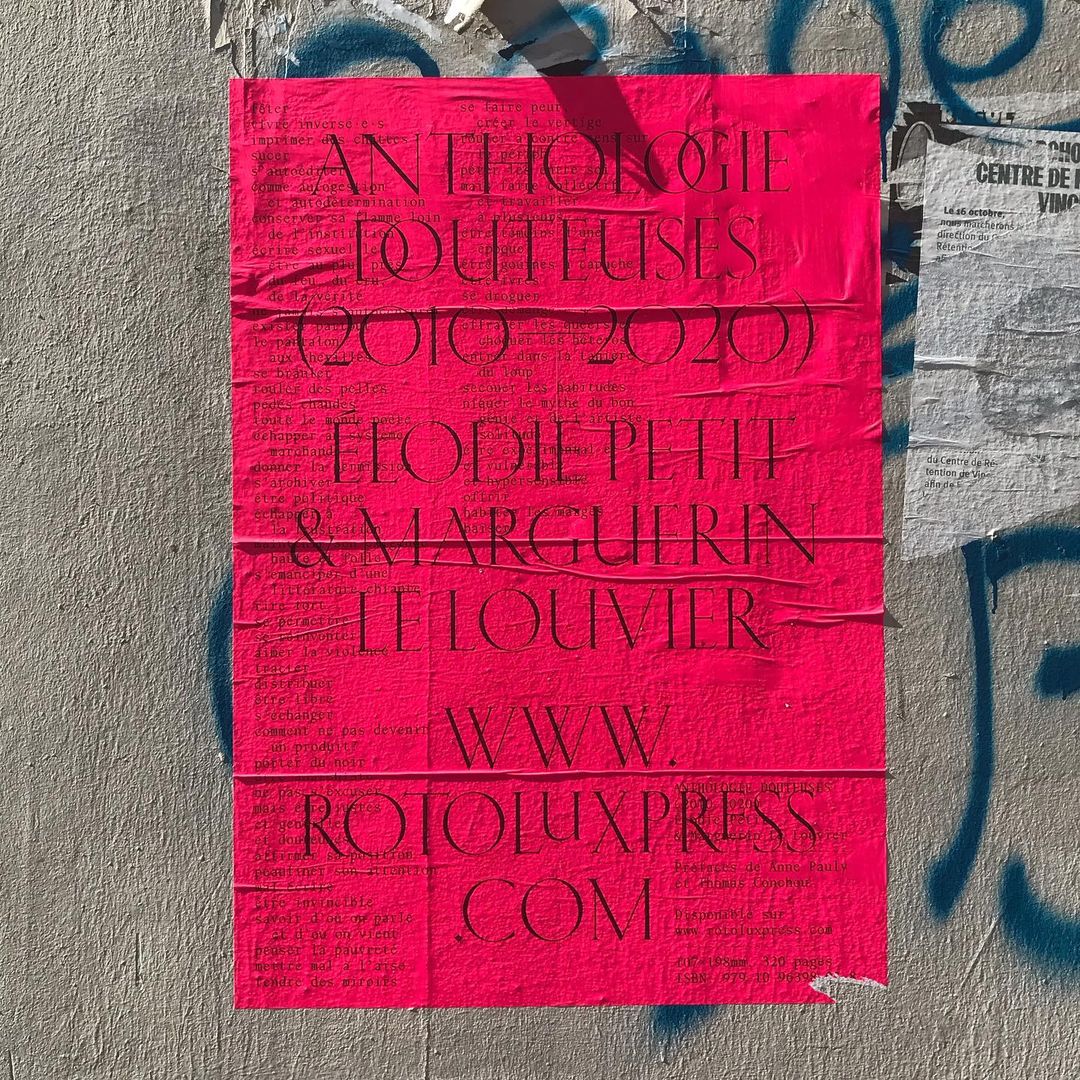 ANTHOLOGIE
DOUTEUSES
(2010–2020)
ÉLODIE PETIT
& MARGUERIN
LE LOUVIER
WWW.
ROTOLUXPRESS
.COM
fêter
vivre inversé·e·s
imprimer des chattes
sucer
s'autoéditer
comme autogestion
et autodétermination
conserver sa flamme loin
de l'institution
écrire sexuel·le
être au plus
du feu, du cru,
de la vérité
exister partout
le pantalon
aux chevilles
se branler
rouler des pelles
pédés chaudes
toute le monde poète
échapper au système
marchand
donner la permission
s'archiver
être politique
échapper à
la frustration
s'émanciper d'une
littérature chiante
lire fort
se permettre
se réinventer
aimer la violence
tracter
distribuer
être libre
s'échanger
comment ne pas devenir
un produit?
porter du noir
ne pas s'excuser
mais être justes
et
et douteuses
affirmer sa position
peaufiner son attention
mal écrire
être invincible
savoir d'où on parle
et d'où on vient
penser la pauvreté
mettre mal à l'aise
fendre des miroirs
se faire peur
créer le vertige
rouler à contre sens sur
le périph
péter les
mais faire collectif
se travailler
à plusieurs
être témoins d'une
époque
être gouines à capuche
être ivres
se droguer
effrayer les queers
choquer les hétéros
entrer dans la tanière
du loup
secouer les habitudes
niquer le mythe du bon
génie et de l'artiste
solitude
être expérimental·e
et vulnérable
et hypersensible
offrir
habiter les marges
baiser
ANTHOLOGIE DOUTEUSES
& Marguerin Le Louvier
Préfaces de Anne Pauly
et Thomas Conchou
Disponible sur
www.rotoluxpress.com
107×198mm, 320 pages
ISBN: 979-10-96398
CENTRE DE
Le 16 octobre,
nous marcherons
direction du
Rétention
du Centre de Ré-
tention de
afin de